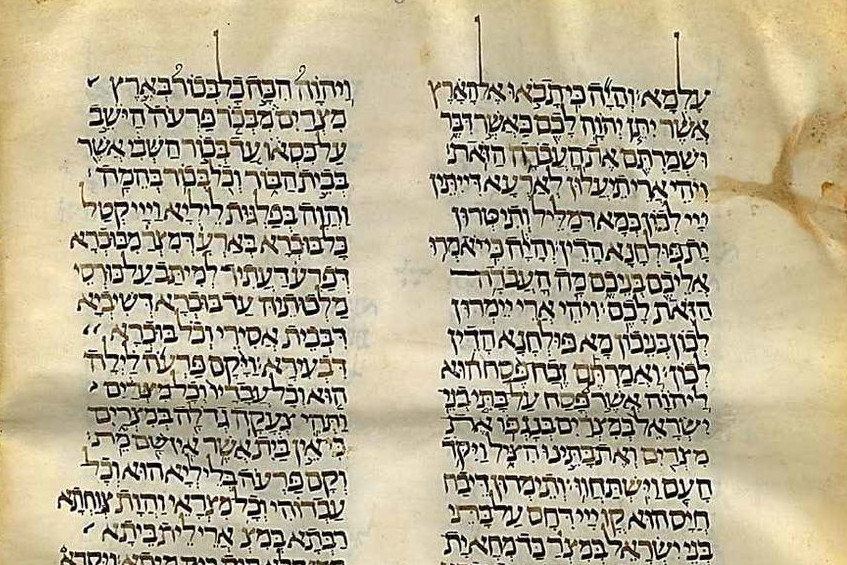 עלמא והיה כי תבאו אל הארץ
אשר יתן יהוה לכם כאשר דבר
ושמרתם את העבדה הזאת
ויהי ארי תיעלון לארעא דייתין
ייי לכון כמא דמליל ותיטרון
ית פולחנא הדין והיה כי יאמרו
אליכם בניכם מה העבדה
הזאת לכם ויהי ארי יימרון
לכון בניכון מא פולחנא הדין
לכון ואמרתם זבח פסח הוא
ליהוה אשר פסח על בתי בני
ישראל במצרים בנגפו את
מצרים ואת בתינו הציל ויקד
העם וישתחוו ותימרון דיבח
חיס הוא קד ייי דחס על בתי
בני ישראל במצר כד מחא ית
ויהוה הכה כל בכור בארץ
מצרים מבכר פרעה הישב
על כסאו עד בכור השבי אשר
בבית הבור וכל בכור בהמה
והוה בפלגות ליליא וייי קטל
כל בוכרא בארע דמצר מבוכרא
דפרעה דעתיד למיתב על כורסי
מלכותיה עד בוכרא דשיביא
דבבית אסירי וכל בוכרא
דבעירא ויקם פרעה לילה
הוא וכל עבדיו וכל מצרים
ותהי צעקה גדלה במצרים
כי אין בית אשר אין שם מת
וקם פרעה בליליא הוא וכל
עבדוהי וכל מצראי והות צוחתא
רבתא במצ ארי לית ביתא